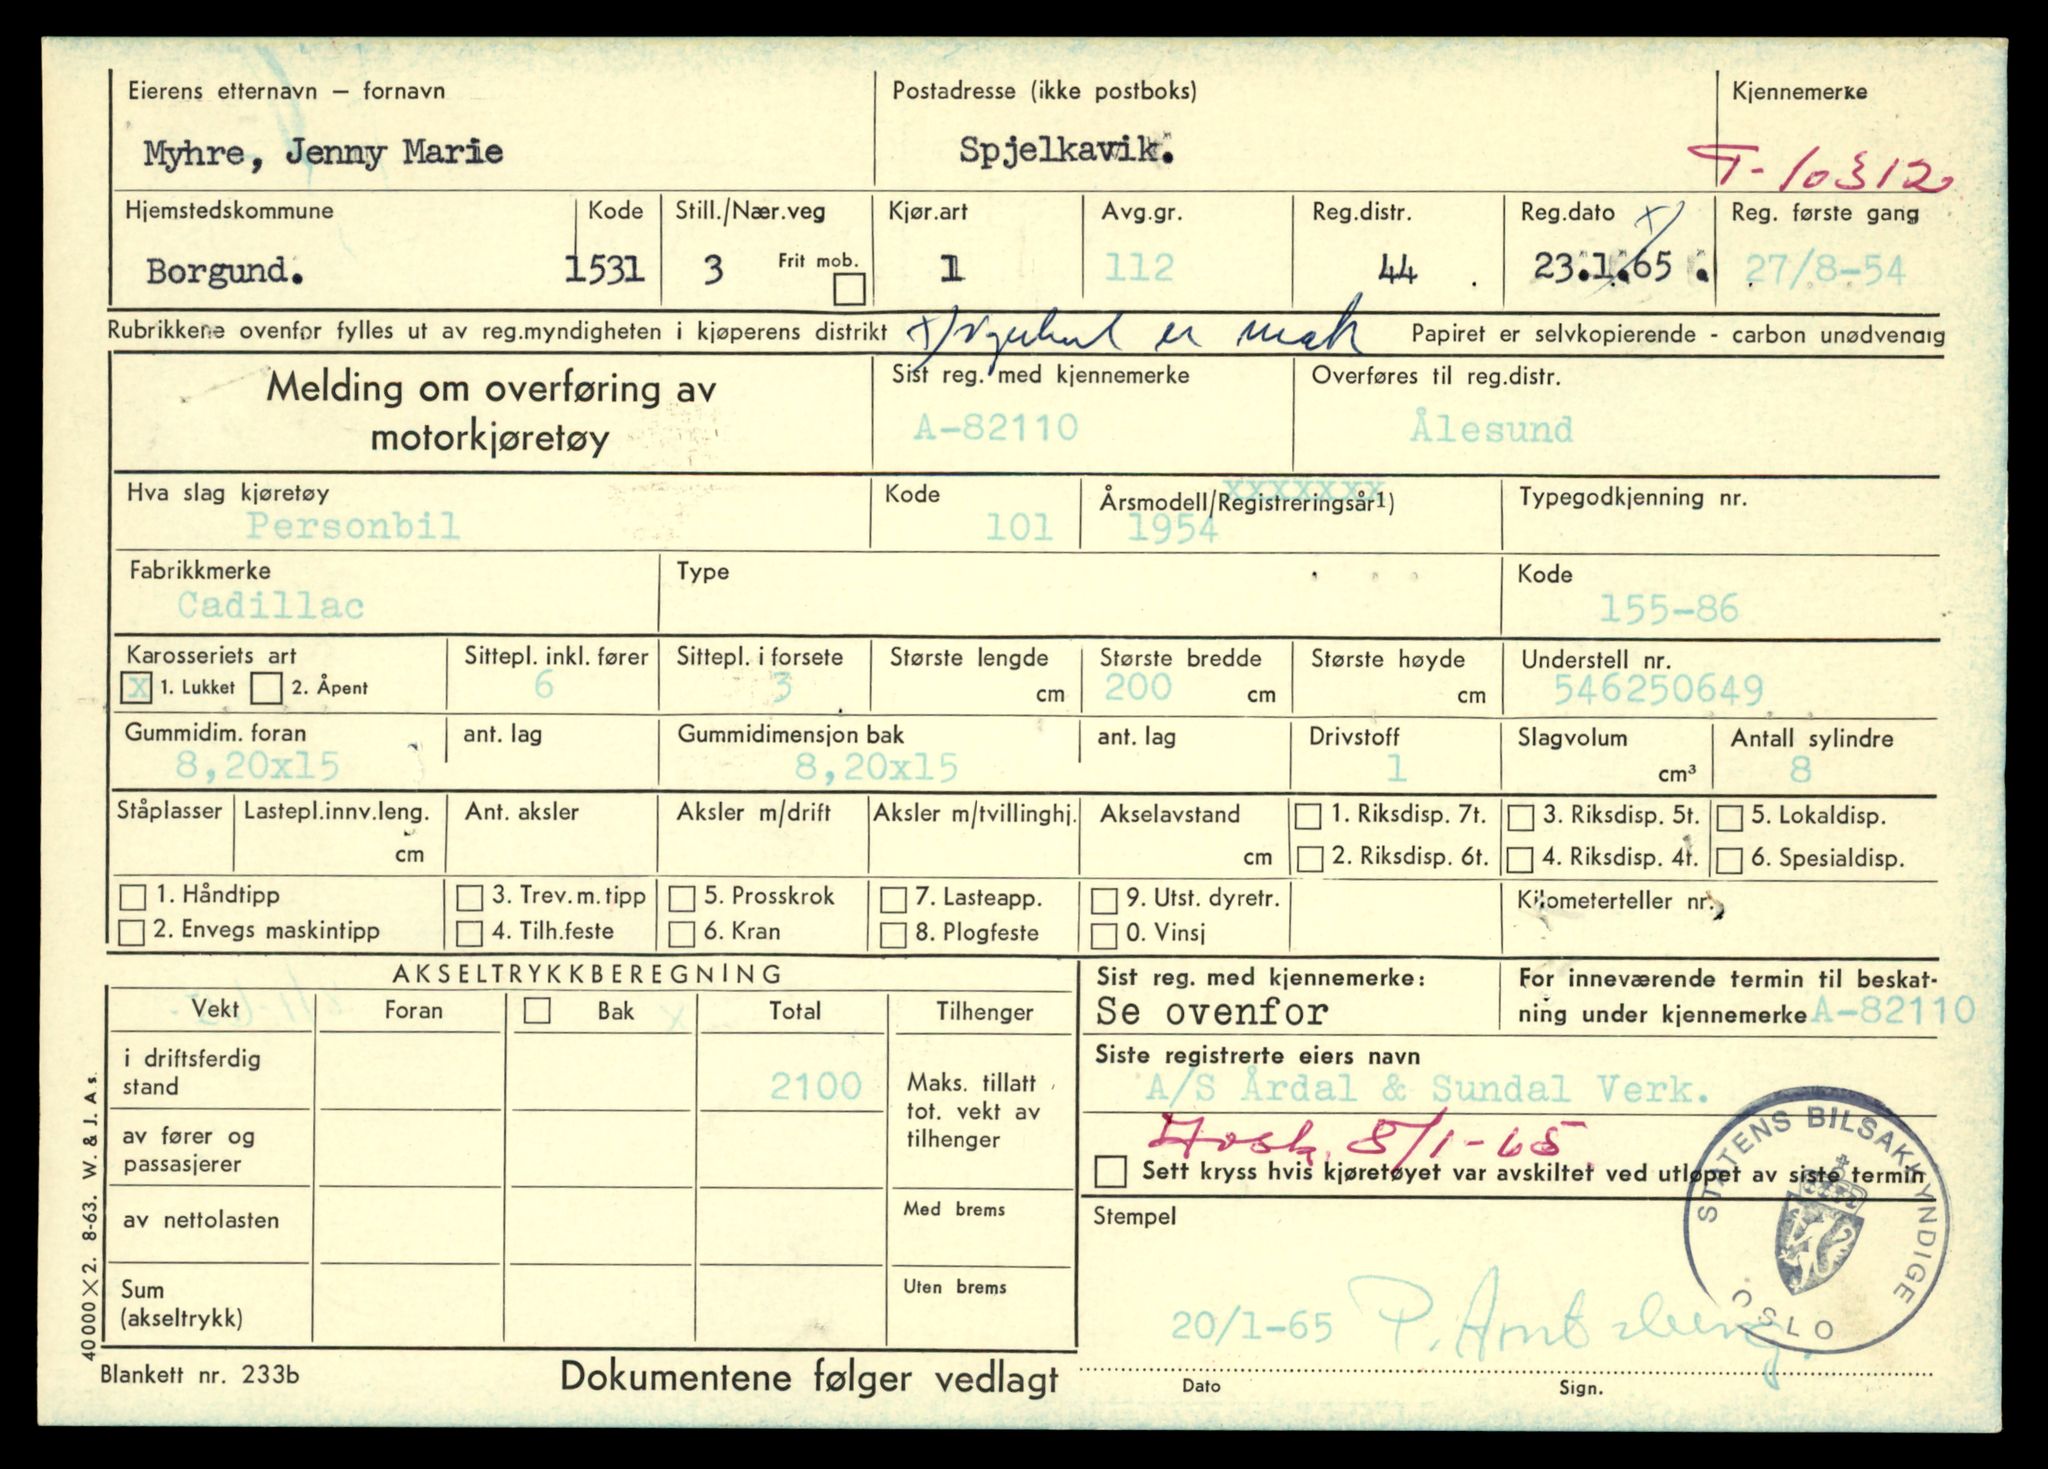 Eierens etternavn – fornavn
Postadresse (ikke postboks)
Kjennemerke
Myhre, Jenny Marie
Spjelkavik.
T-10312
Hjemstedskommune
Kode
Still./Nær.veg
Kjør.art
Avg.gr.
Reg.distr.
Reg.dato x)
Reg. første gang
Borgund.
1531
3
Frit mob.
1
112
44
23.1.65.
27/8-54
Rubrikkene ovenfor fylles ut av reg.myndigheten i kjøperens distrikt
x)
er
Papiret er selvkopierende - carbon unødvendig
Melding om overføring av
motorkjøretøy
Sist reg. med kjennemerke
Overføres til reg.distr.
A-82110
Ålesund
Hva slag kjøretøy
Kode
Årsmodell/Registreringsår1)
xxxxxxx
Typegodkjenning nr.
Personbil
101
1954
Fabrikkmerke
Type
Kode
Cadillac
155-86
Karosseriets art
Sittepl. inkl. fører
Sittepl. i forsete
Største lengde
Største bredde
Største høyde
Understell nr.
x 1. Lukket 2. Åpent
6
3
cm
200 cm
cm
546250649
Gummidim. foran
ant. lag
Gummidimensjon bak
ant. lag
Drivstoff
Slagvolum
Antall sylindre
8,20x15
8,20x15
1
cm³
8
Ståplasser
Lastepl.innv.leng.
Ant. aksler
Aksler m/drift
Aksler m/tvillinghj.
Akselavstand
1. Riksdisp. 7t.
3. Riksdisp. 5t.
5. Lokaldisp.
cm
cm
2. Riksdisp. 6t.
4. Riksdisp. 4t.
6. Spesialdisp.
1. Håndtipp
3. Trev.m.tipp
5. Prosskrok
7. Lasteapp.
9. Utst. dyretr.
Kilometerteller nr.
2. Envegs maskintipp
4. Tilh.feste
6. Kran
8. Plogfeste
0. Vinsj
AKSELTRYKKBEREGNING
Vekt
Foran
Bak
Total
Tilhenger
i driftsferdig
stand
2100
Maks. tillatt
tot. vekt av
tilhenger
av fører og
passasjerer
av nettolasten
Med brems
Sum
(akseltrykk)
Uten brems
Sist reg. med kjennemerke:
Se ovenfor
For inneværende termin til beskat-
ning under kjennemerke A-82110
Siste registrerte eiers navn
A/S Årdal & Sundal Verk.
8/1-65
Sett kryss hvis kjøretøyet var avskiltet ved utløpet av siste termin
Stempel
STATENS BILSAKKYNDIGE
OSLO
20/1-65
Dato
Sign.
40000 X 2. 8-63. W. & J. A s.
Blankett nr. 233b
Dokumentene følger vedlagt